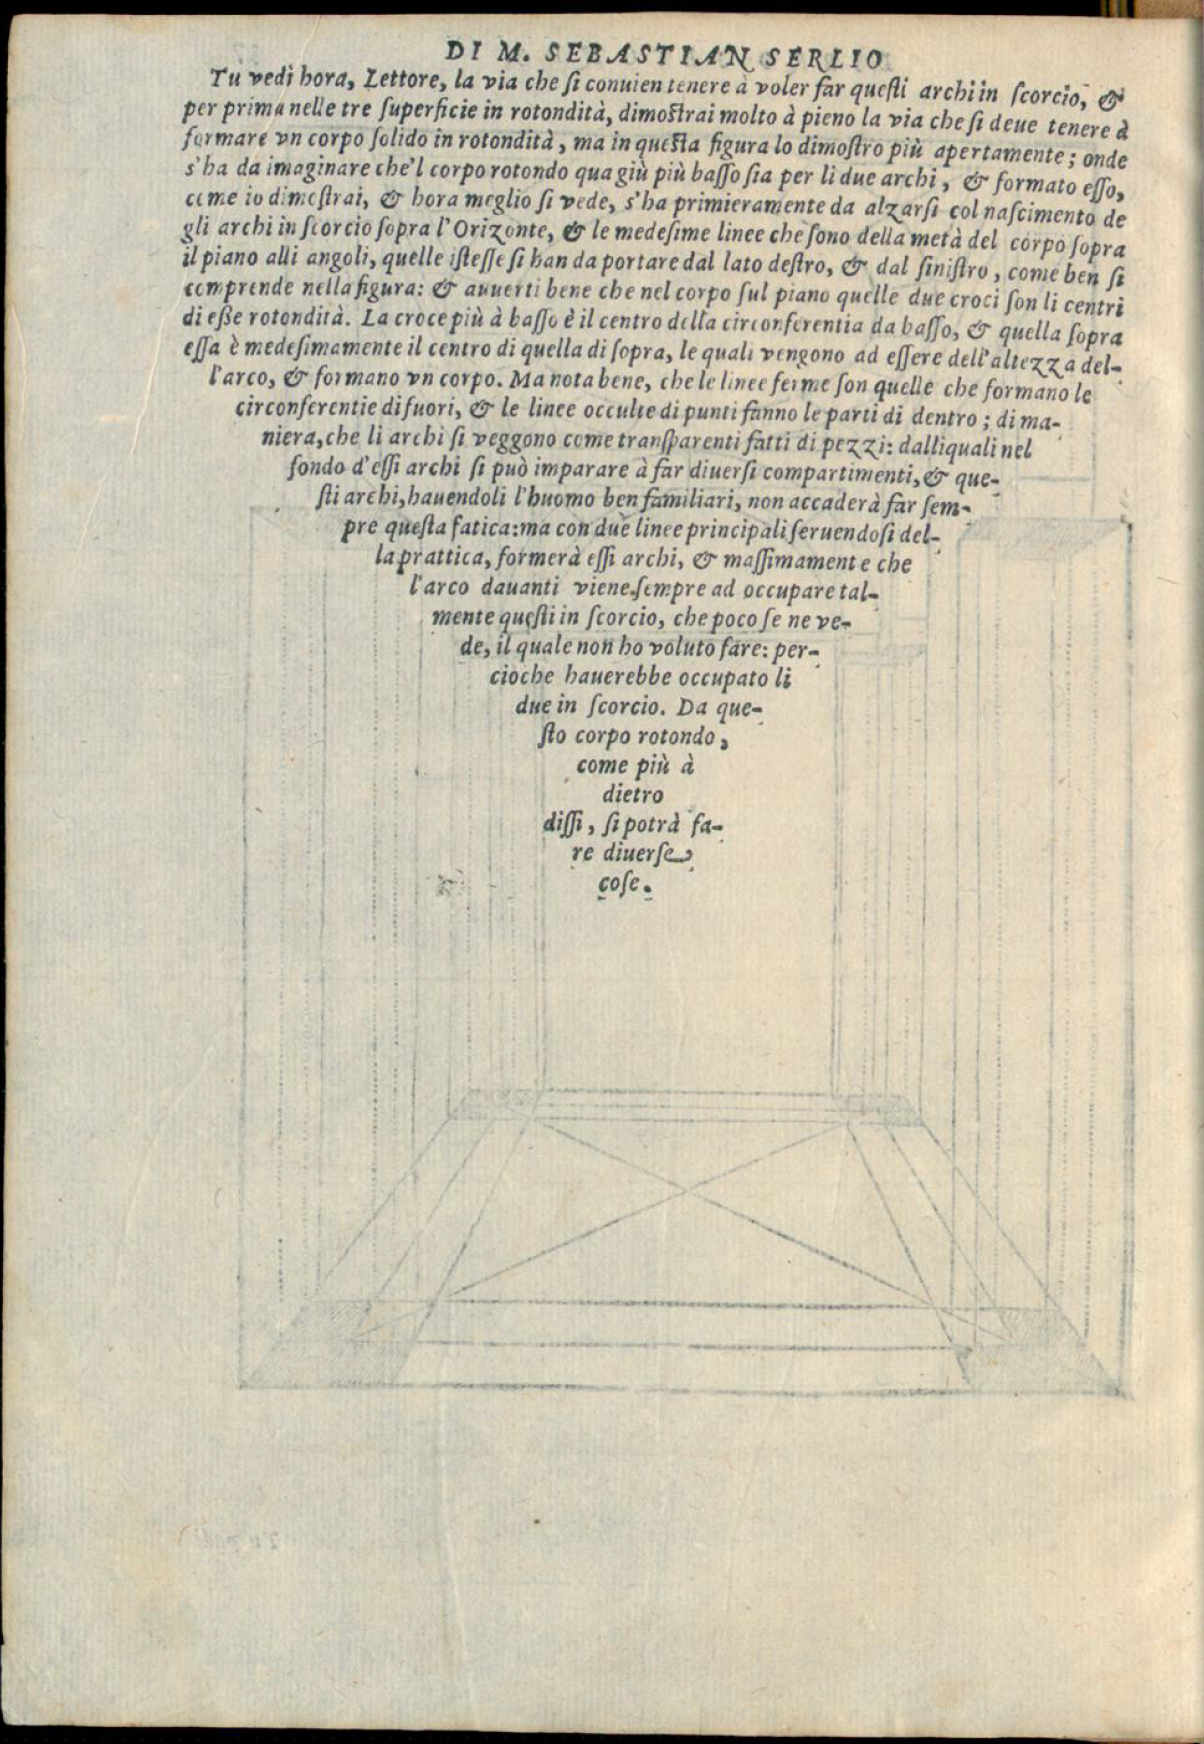 DI M. SEBASTIAN SERLIO
Tu vedi hora, Lettore, la via che ſi conuien tenere à voler far queſti archi in ſcorcio, &
per prima nelle tre ſuperficie in rotondità, dimoſtrai molto à pieno la via che ſi deue tenere à
formare vn corpo ſolido in rotondità, ma in queſta figura lo dimoſtro più apertamente; onde
s'ha da imaginare che'l corpo rotondo qua giù più baſſo ſia per li due archi, & formato eſſo,
come io dimoſtrai, & hora meglio ſi vede, s'ha primieramente da alzarſi col naſcimento de
gli archi in ſcorcio ſopra l'Orizonte, & le medeſime linee che ſono della metà del corpo ſopra
il piano alli angoli, quelle iſteſſe ſi han da portare dal lato deſtro, & dal ſiniſtro, come ben ſi
comprende nella figura: & auuerti bene che nel corpo ſul piano quelle due croci ſon li centri
di eſſe rotondità. La croce più à baſſo è il centro della circonferentia da baſſo, & quella ſopra
eſſa è medeſimamente il centro di quella di ſopra, le quali vengono ad eſſere dell'altezza del-
l'arco, & formano vn corpo. Ma nota bene, che le linee ferme ſon quelle che formano le
circonferentie di fuori, & le linee occulte di punti fanno le parti di dentro; di ma-
niera, che li archi ſi veggono come tranſparenti fatti di pezzi: dalliquali nel
fondo d'eſſi archi ſi può imparare à far diuerſi compartimenti, & que-
ſti archi, hauendoli l'huomo ben familiari, non accaderà far ſem-
pre queſta fatica: ma con due linee principali ſeruendoſi del-
la prattica, formerà eſſi archi, & maſſimamente che
l'arco dauanti viene ſempre ad occupare tal-
mente queſti in ſcorcio, che poco ſe ne ve-
de, il quale non ho voluto fare: per-
cioche hauerebbe occupato li
due in ſcorcio. Da que-
ſto corpo rotondo,
come più à
dietro
diſſi, ſi potrà fa-
re diuerſe
coſe.